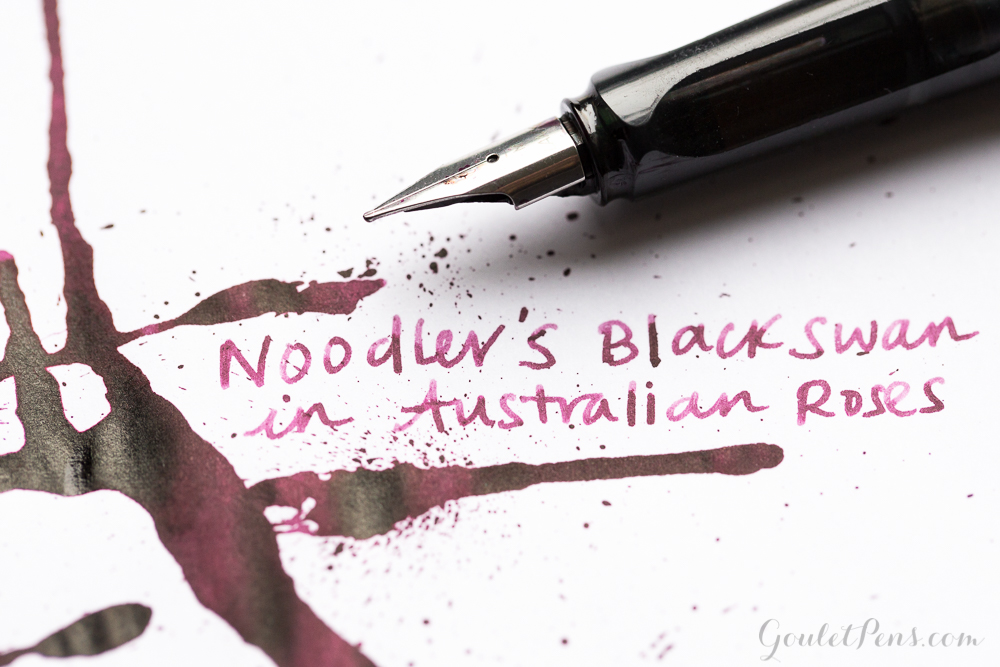 Noodler's Blackswan
in Australian Roses
GouletPens.com